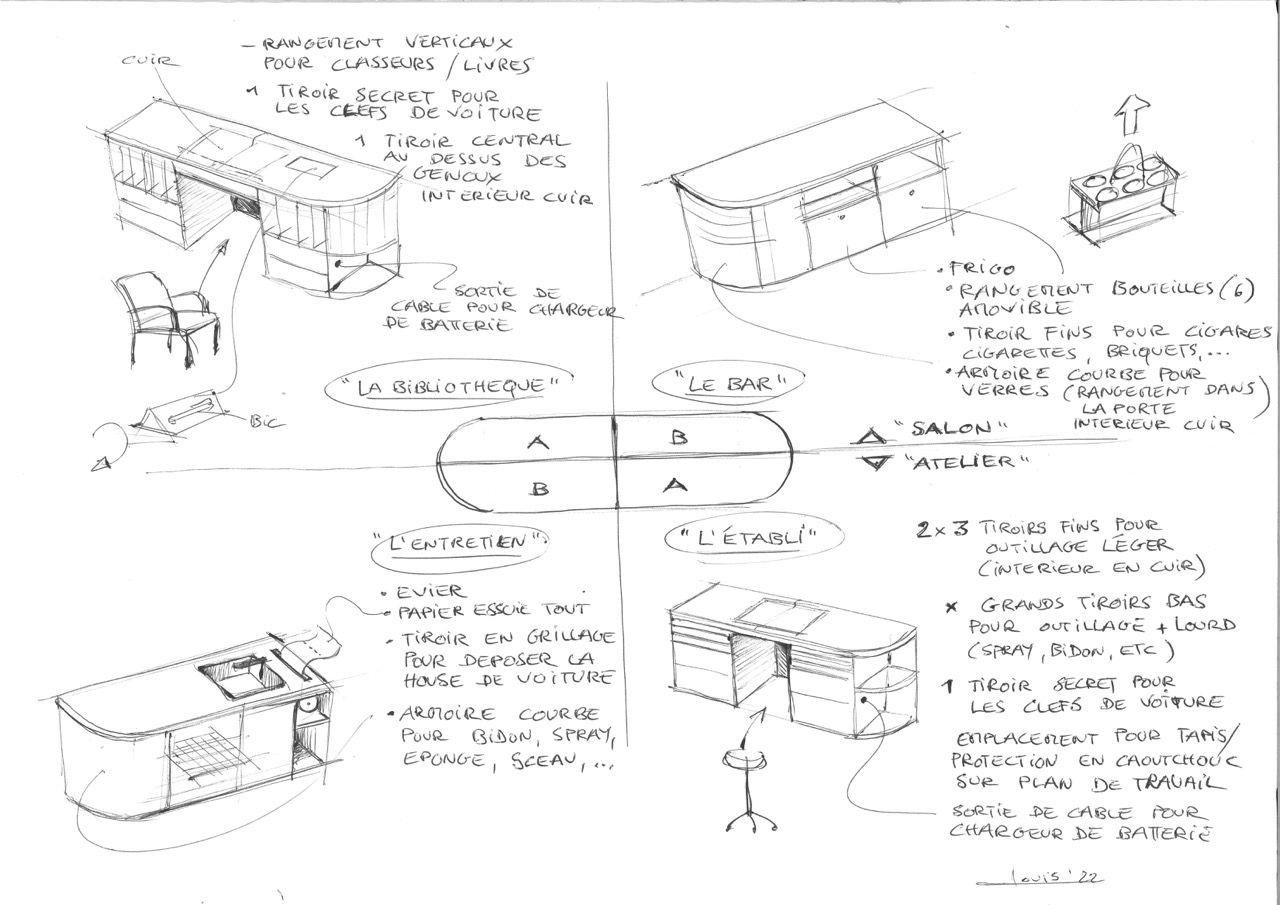 CUIR
- RANGEMENT VERTICAUX
POUR CLASSEURS / LIVRES
1 TIROIR SECRET POUR
LES CLEFS DE VOITURE
1 TIROIR CENTRAL
AU DESSUS DES
GENOUX
INTERIEUR CUIR
SORTIE DE
CABLE POUR CHARGEUR
DE BATTERIE
BIC
"LA BIBLIOTHEQUE"
• FRIGO
• RANGEMENT BOUTEILLES (6)
AMOVIBLE
• TIROIR FINS POUR CIGARES
CIGARETTES, BRIQUETS,...
• ARMOIRE COURBE POUR
VERRES (RANGEMENT DANS)
LA PORTE
INTERIEUR CUIR
"LE BAR"
A
B
B
A
"SALON"
"ATELIER"
"L'ENTRETIEN"
• EVIER
• PAPIER ESSUIE TOUT
• TIROIR EN GRILLAGE
POUR DEPOSER LA
HOUSE DE VOITURE
• ARMOIRE COURBE
POUR BIDON, SPRAY,
EPONGE, SCEAU,...
"L'ÉTABLI"
2x3 TIROIRS FINS POUR
OUTILLAGE LÉGER
(INTERIEUR EN CUIR)
x GRANDS TIROIRS BAS
POUR OUTILLAGE + LOURD
(SPRAY, BIDON, ETC)
1 TIROIR SECRET POUR
LES CLEFS DE VOITURE
EMPLACEMENT POUR TAPIS/
PROTECTION EN CAOUTCHOUC
SUR PLAN DE TRAVAIL
SORTIE DE CABLE POUR
CHARGEUR DE BATTERIE
Louis '22